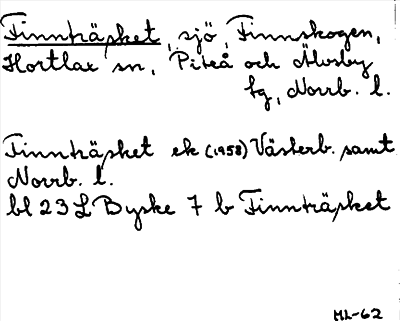 Finnträsket, sjö, Finnskogen,
Hortlax sn, Piteå och Älvsby
fg, Norrb. l.
Finnträsket ek (1958) Västerb. samt
Norrb. l.
bl 23 L Byske 7 b Finnträsket
ML-62